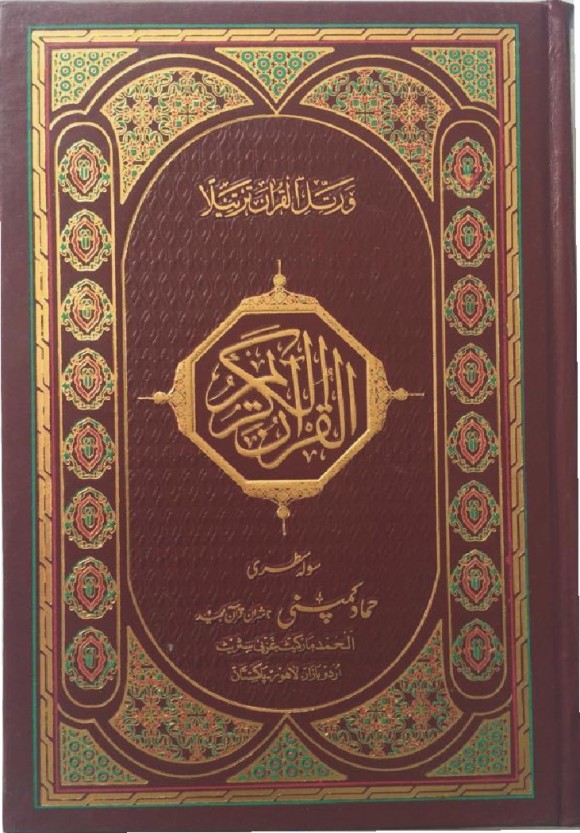 وَرَتِّلِ الْقُرْاٰنَ تَرْتِيْلًا
القرآن الكريم
سولہ سطری
حماد کمپنی ناشران قرآن مجید
الحمد مارکیٹ غزنی سٹریٹ
اردو بازار لاہور پاکستان